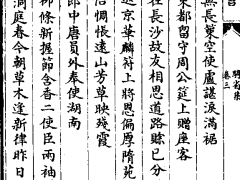 騎省集
卷三
無長策空使盧諶淚滿裾
東都留守周公筵上贈座客
在長沙故友相思道路賒已分
京華麟符上將恩偏厚隋苑
惆悵遠山芳草映殘霞
郎中唐員外奉使湖南
柳條新握節含香二使臣兩袖
洞庭春今朝草木逢新律昨日